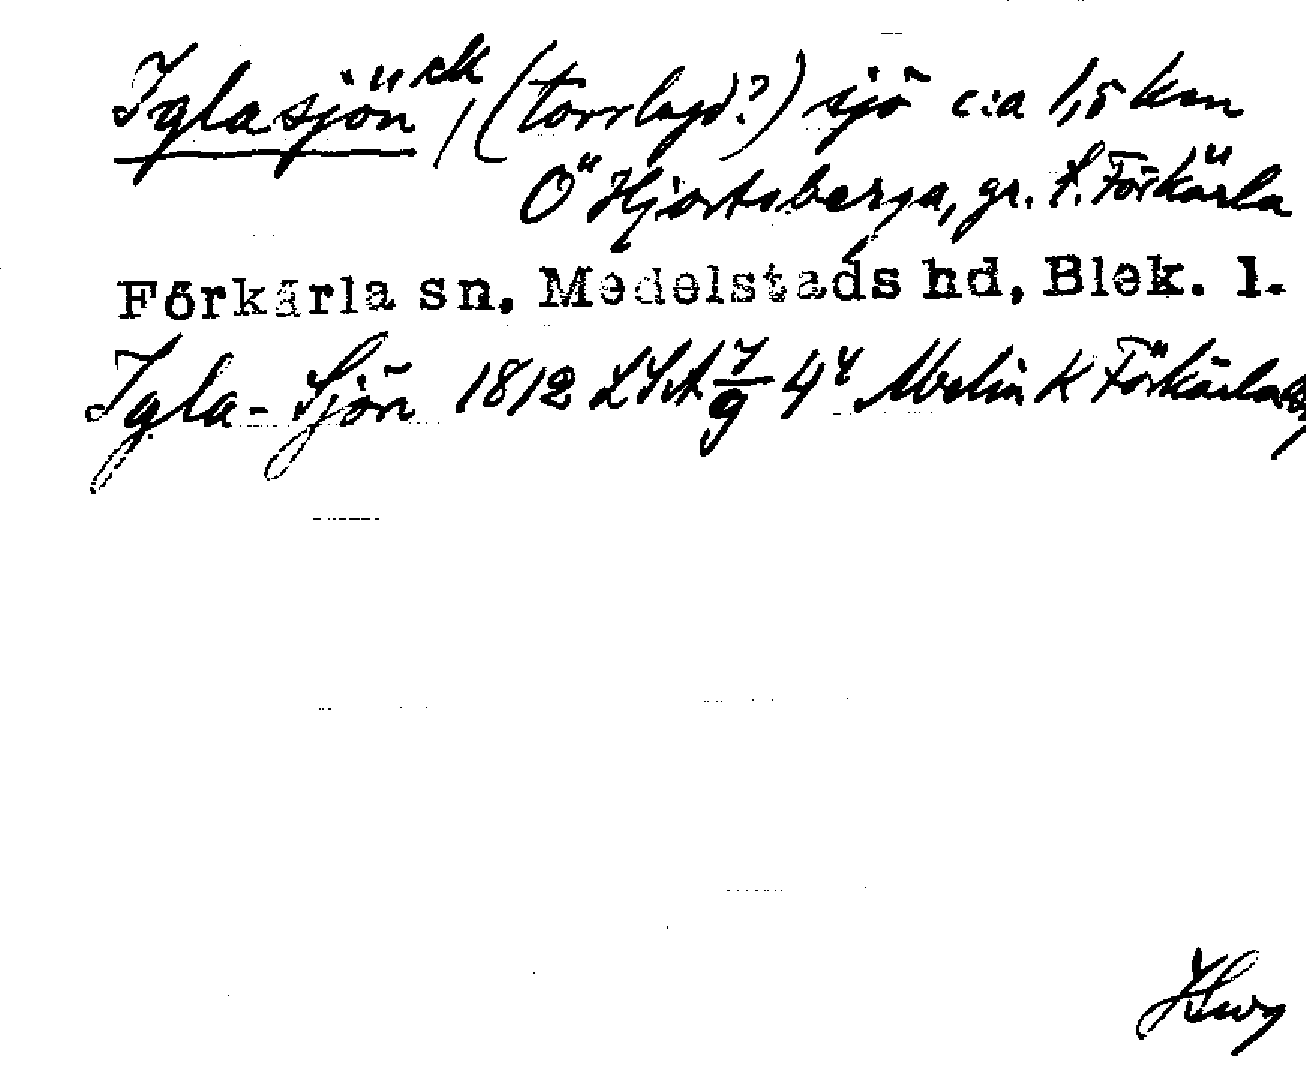 Iglasjön ek, (torrlagd?) sjö c:a 1,5 km
Ö Hjortsberga, gr. t. Förkärla
Förkärla sn, Medelstads hd, Blek. l.
Igla-Sjön 1812 LSA 7/9 4 Abelin K Förkärla